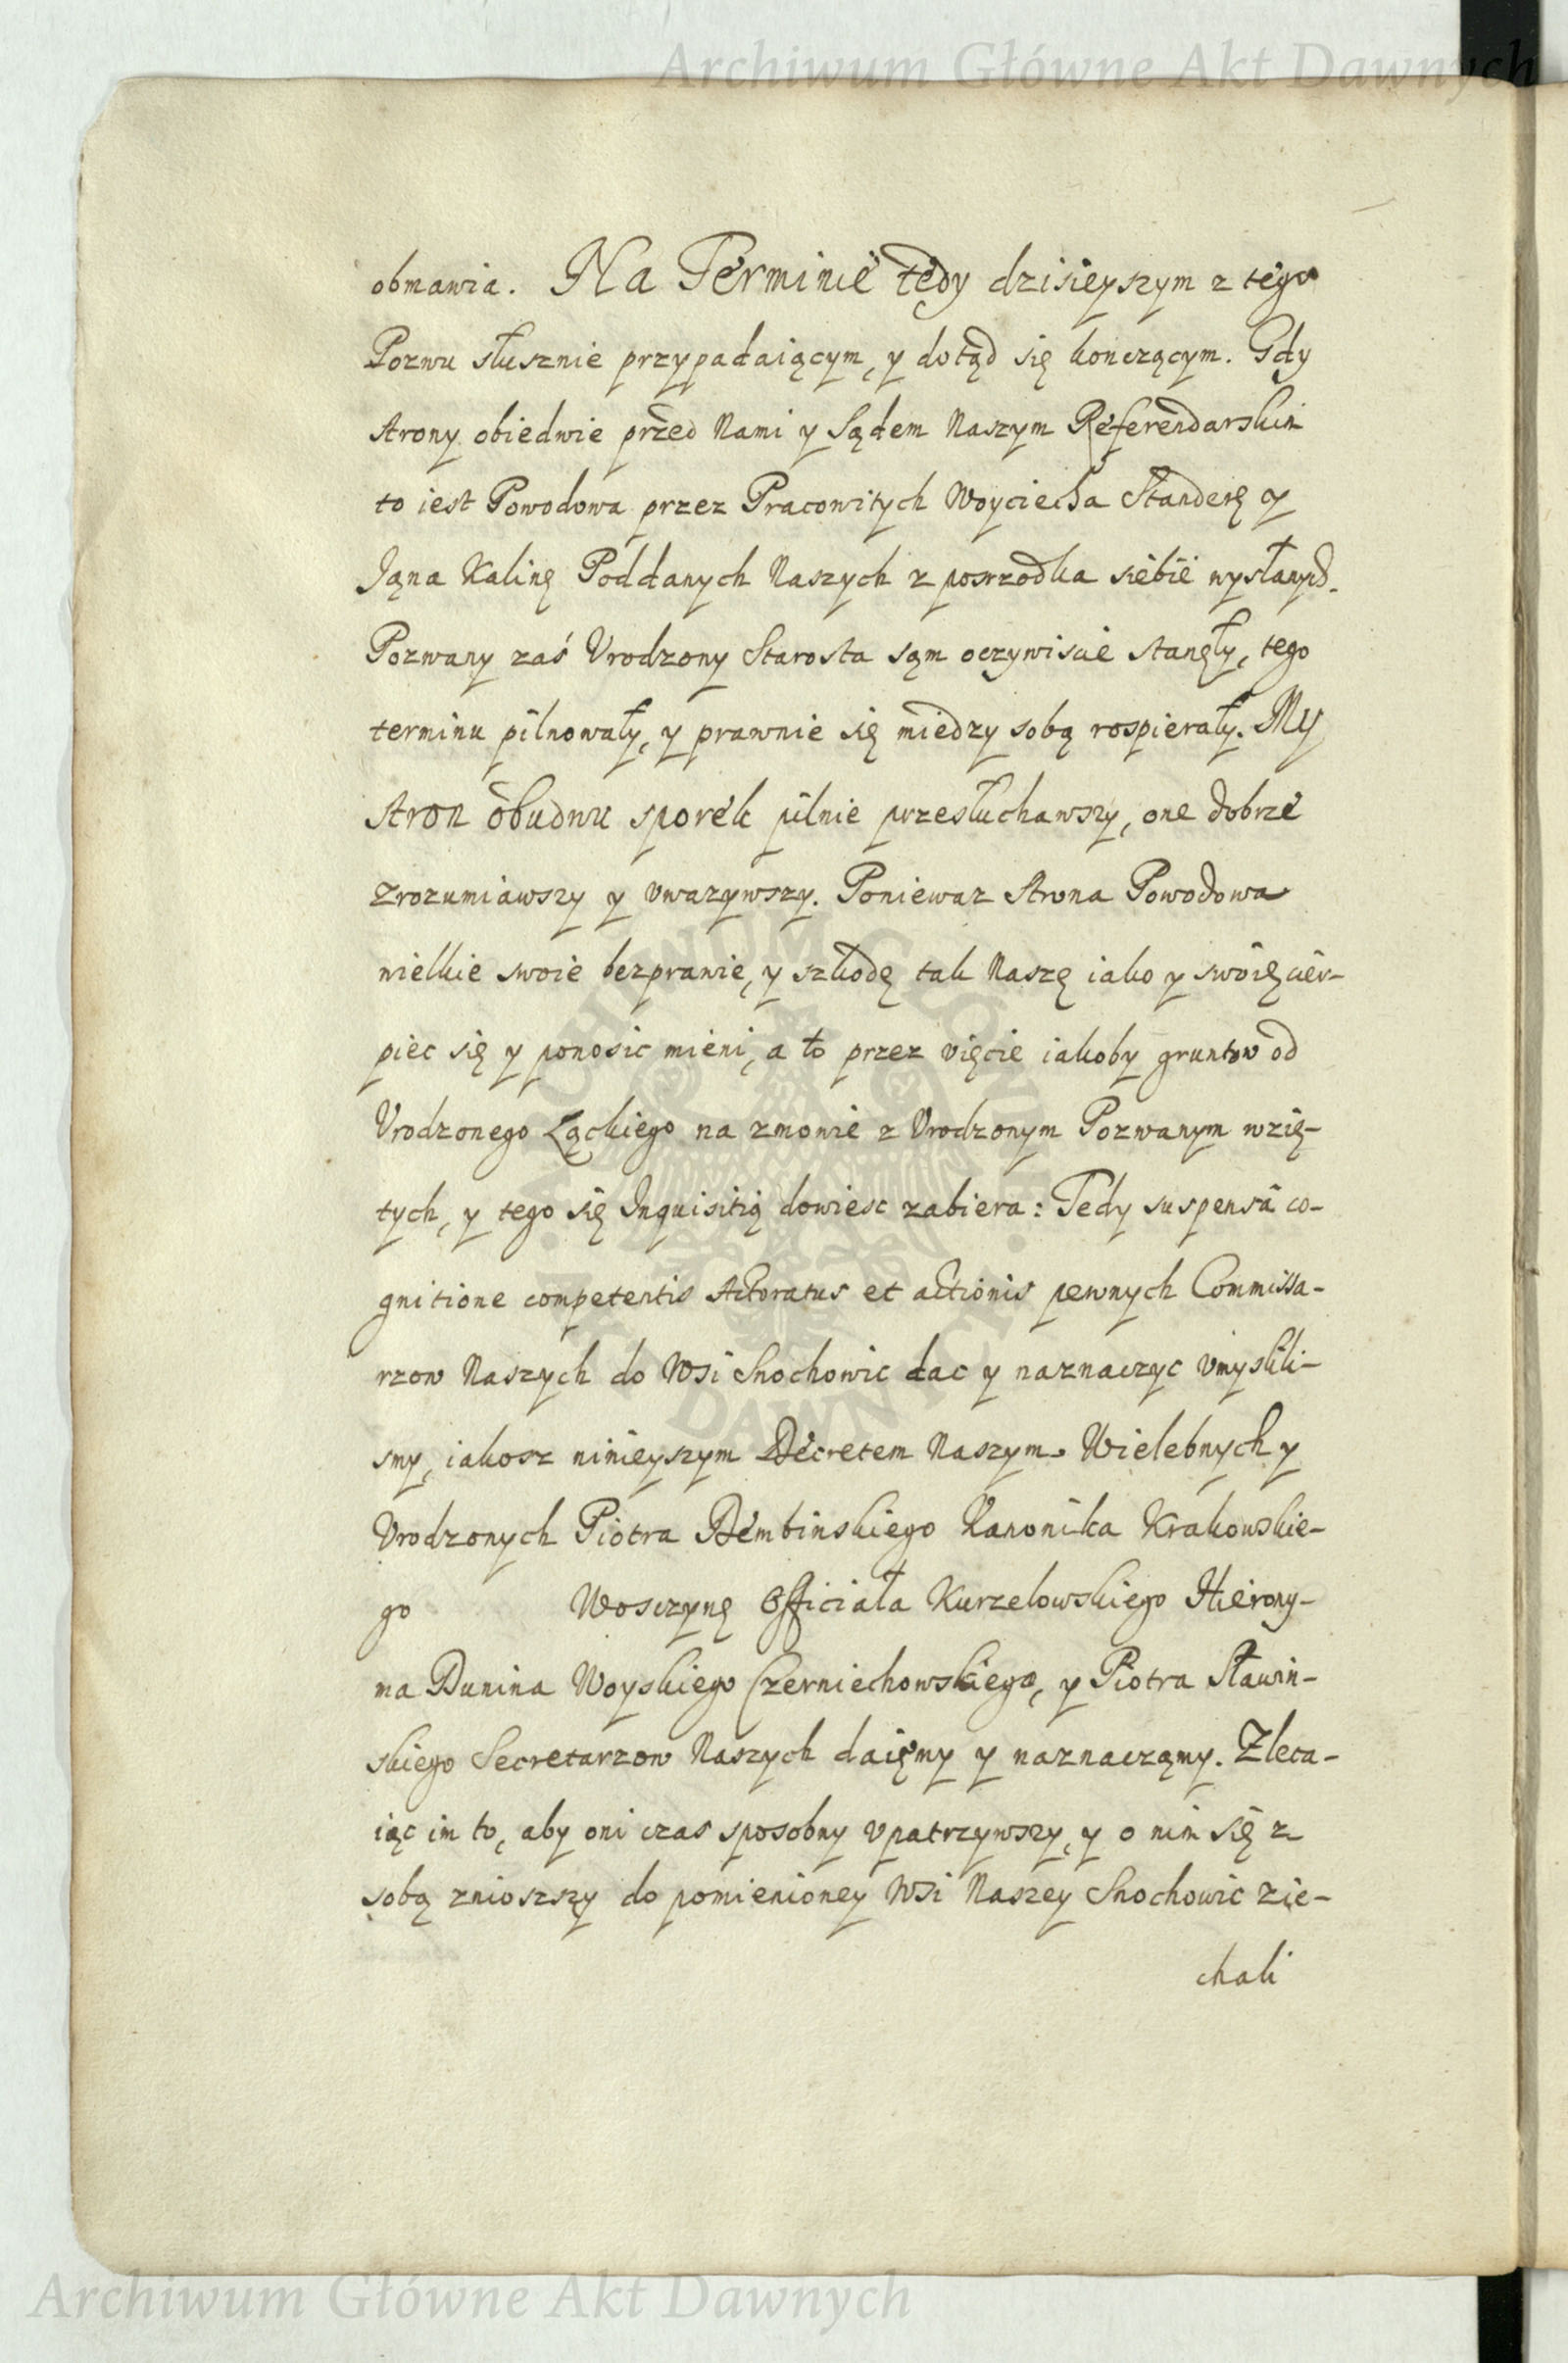 Archiwum Główne Akt Dawnych
obmawia. Na Terminie tedy dzisieyszym z tego
Pozwu słusznie przypadaiącym, y dotąd się konczącym. Gdy
strony obiedwie przed Nami y Sądem Naszym Referendarskim
to iest Powodowa przez Pracowitych Woyciecha Standerę y
Jąna Kalinę Poddanych Naszych z posrzodka siebie wysłanych.
Pozwany zaś Vrodzony Starosta sąm oczywiscie stanęły, tego
terminu pilnowały, y prawnie się miedzy sobą rospierały. My
stron obudwu sporek pilnie przesłuchawszy, one dobrze
zrozumiawszy y vwazywszy. Poniewaz strona Powodowa
wielkie swoie bezprawie, y szkodę tak Naszę iako y swoię cier-
piec się y ponosic mieni, a to przez vięcie iakoby gruntow od
Vrodzonego Łąckiego na zmowie z Vrodzonym Pozwanym wzię-
tych, y tego się Inquisitią dowiesc zabiera: Tedy suspensa co-
gnitione competentis Actoratus et actionis pewnych Commissa-
rzow Naszych do Wsi Snochowic dac y naznaczyc vmyslili-
smy, iakosz ninieyszym Decretem Naszym Wielebnych y
Vrodzonych Piotra Dembinskiego Kanonika Krakowskie-
go Wosczynę Officiała Kurzelowskiego Hierony-
ma Dunina Woyskiego Czerniechowskiego, y Piotra Sławin-
skiego Secretarzow Naszych daięmy y naznacząmy. Zleca-
iąc im to, aby oni czas sposobny vpatrzywszy, y o nim się z
sobą znioszszy do pomienioney Wsi Naszey Snochowic zie-
chali
ARCHIWUM GŁÓWNE AKT DAWNYCH
Archiwum Główne Akt Dawnych